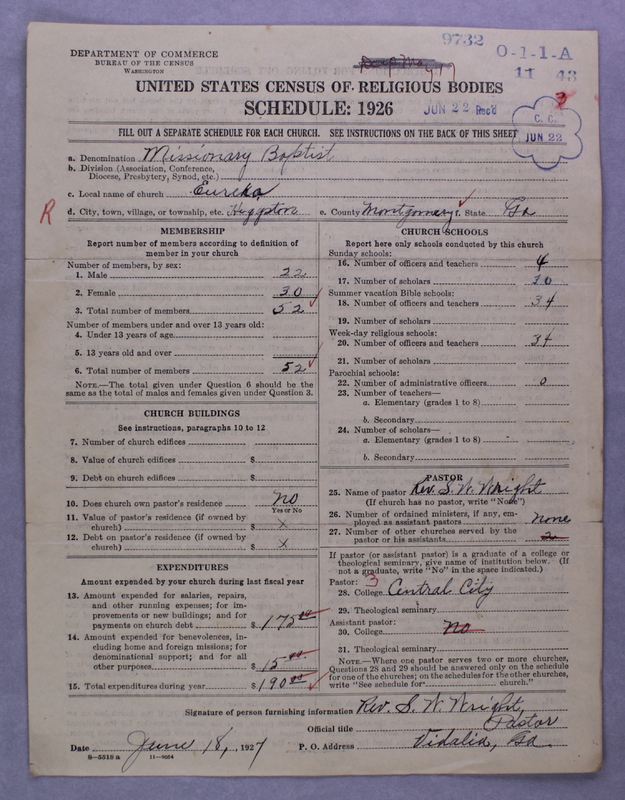 9732
O-1-1-A
11 43
DEPARTMENT OF COMMERCE
BUREAU OF THE CENSUS
WASHINGTON
UNITED STATES CENSUS OF RELIGIOUS BODIES
SCHEDULE: 1926
JUN 22 Rec'd
C. C.
JUN 22
FILL OUT A SEPARATE SCHEDULE FOR EACH CHURCH. SEE INSTRUCTIONS ON THE BACK OF THIS SHEET
a. Denomination Missionary Baptist
b. Division (Association, Conference, Diocese, Presbytery, Synod, etc.)
c. Local name of church Eureka
R
d. City, town, village, or township, etc. Higgston e. County Montgomery f. State Ga
MEMBERSHIP
Report number of members according to definition of member in your church
Number of members, by sex:
1. Male 22
2. Female 30
3. Total number of members 52
Number of members under and over 13 years old:
4. Under 13 years of age
5. 13 years old and over
6. Total number of members 52
NOTE.—The total given under Question 6 should be the same as the total of males and females given under Question 3.
CHURCH BUILDINGS
See instructions, paragraphs 10 to 12
7. Number of church edifices
8. Value of church edifices $
9. Debt on church edifices $
10. Does church own pastor's residence no
Yes or No
11. Value of pastor's residence (if owned by church) $ x
12. Debt on pastor's residence (if owned by church) $ x
EXPENDITURES
Amount expended by your church during last fiscal year
13. Amount expended for salaries, repairs, and other running expenses; for improvements or new buildings; and for payments on church debt $ 175 00
14. Amount expended for benevolences, including home and foreign missions; for denominational support; and for all other purposes $ 15 00
15. Total expenditures during year $ 190 00
CHURCH SCHOOLS
Report here only schools conducted by this church
Sunday schools:
16. Number of officers and teachers 4
17. Number of scholars 30
Summer vacation Bible schools:
18. Number of officers and teachers 34
19. Number of scholars
Week-day religious schools:
20. Number of officers and teachers 34
21. Number of scholars
Parochial schools:
22. Number of administrative officers 0
23. Number of teachers—
a. Elementary (grades 1 to 8)
b. Secondary
24. Number of scholars—
a. Elementary (grades 1 to 8)
b. Secondary
PASTOR
25. Name of pastor Rev. S. W. Wright
(If church has no pastor, write "None")
26. Number of ordained ministers, if any, employed as assistant pastors none
27. Number of other churches served by the pastor or his assistants
If pastor (or assistant pastor) is a graduate of a college or theological seminary, give name of institution below. (If not a graduate, write "No" in the space indicated.)
Pastor: 3
28. College Central City
29. Theological seminary
Assistant pastor:
30. College no
31. Theological seminary
NOTE.—Where one pastor serves two or more churches, Questions 28 and 29 should be answered only on the schedule for one of the churches; on the schedules for the other churches, write "See schedule for church."
Signature of person furnishing information Rev. S. W. Wright,
Official title Pastor
Date June 18, 1927 P. O. Address Vidalia, Ga.
8—5518 a 11—9054